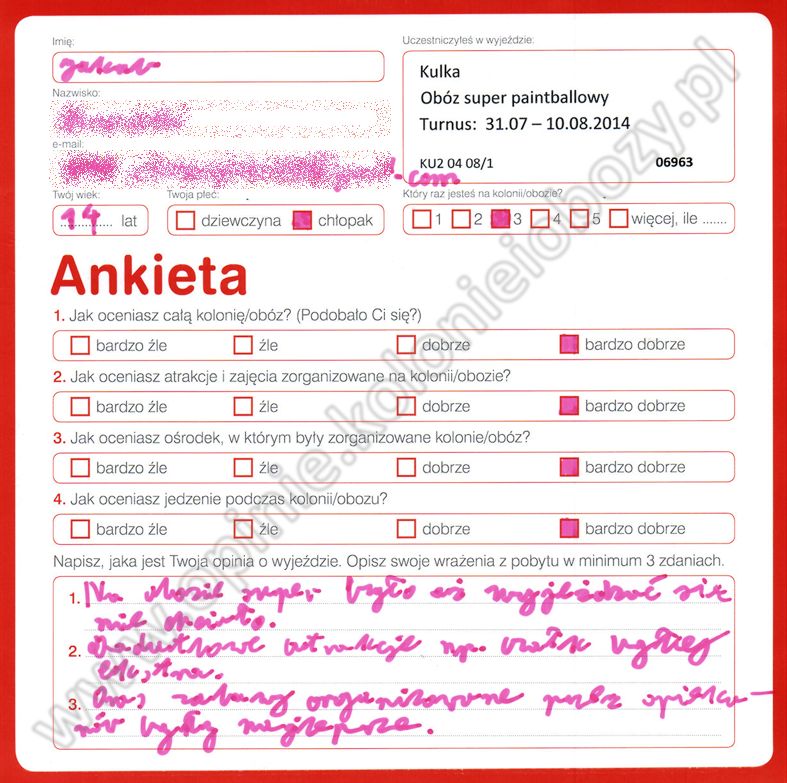 Imię:
Uczestniczyłeś w wyjeździe:
Jakub
Kulka
Obóz super paintballowy
Turnus: 31.07 – 10.08.2014
KU2 04 08/1 06963
Nazwisko:
e-mail:
.com
Twój wiek:
Twoja płeć:
Który raz jesteś na kolonii/obozie?
14 lat
dziewczyna chłopak
1 2 3 4 5 więcej, ile .......
Ankieta
1. Jak oceniasz całą kolonię/obóz? (Podobało Ci się?)
bardzo źle źle dobrze bardzo dobrze
2. Jak oceniasz atrakcje i zajęcia zorganizowane na kolonii/obozie?
bardzo źle źle dobrze bardzo dobrze
3. Jak oceniasz ośrodek, w którym były zorganizowane kolonie/obóz?
bardzo źle źle dobrze bardzo dobrze
4. Jak oceniasz jedzenie podczas kolonii/obozu?
bardzo źle źle dobrze bardzo dobrze
Napisz, jaka jest Twoja opinia o wyjeździe. Opisz swoje wrażenia z pobytu w minimum 3 zdaniach.
1. Na obozie super było aż wyjeżdżać się
nie chciało.
2. Dodatkowe atrakcje np. były
ekstra.
3. Oraz zabawy organizowane przez opieku-
nów były najlepsze.
www.opinie.kolonieiobozy.pl